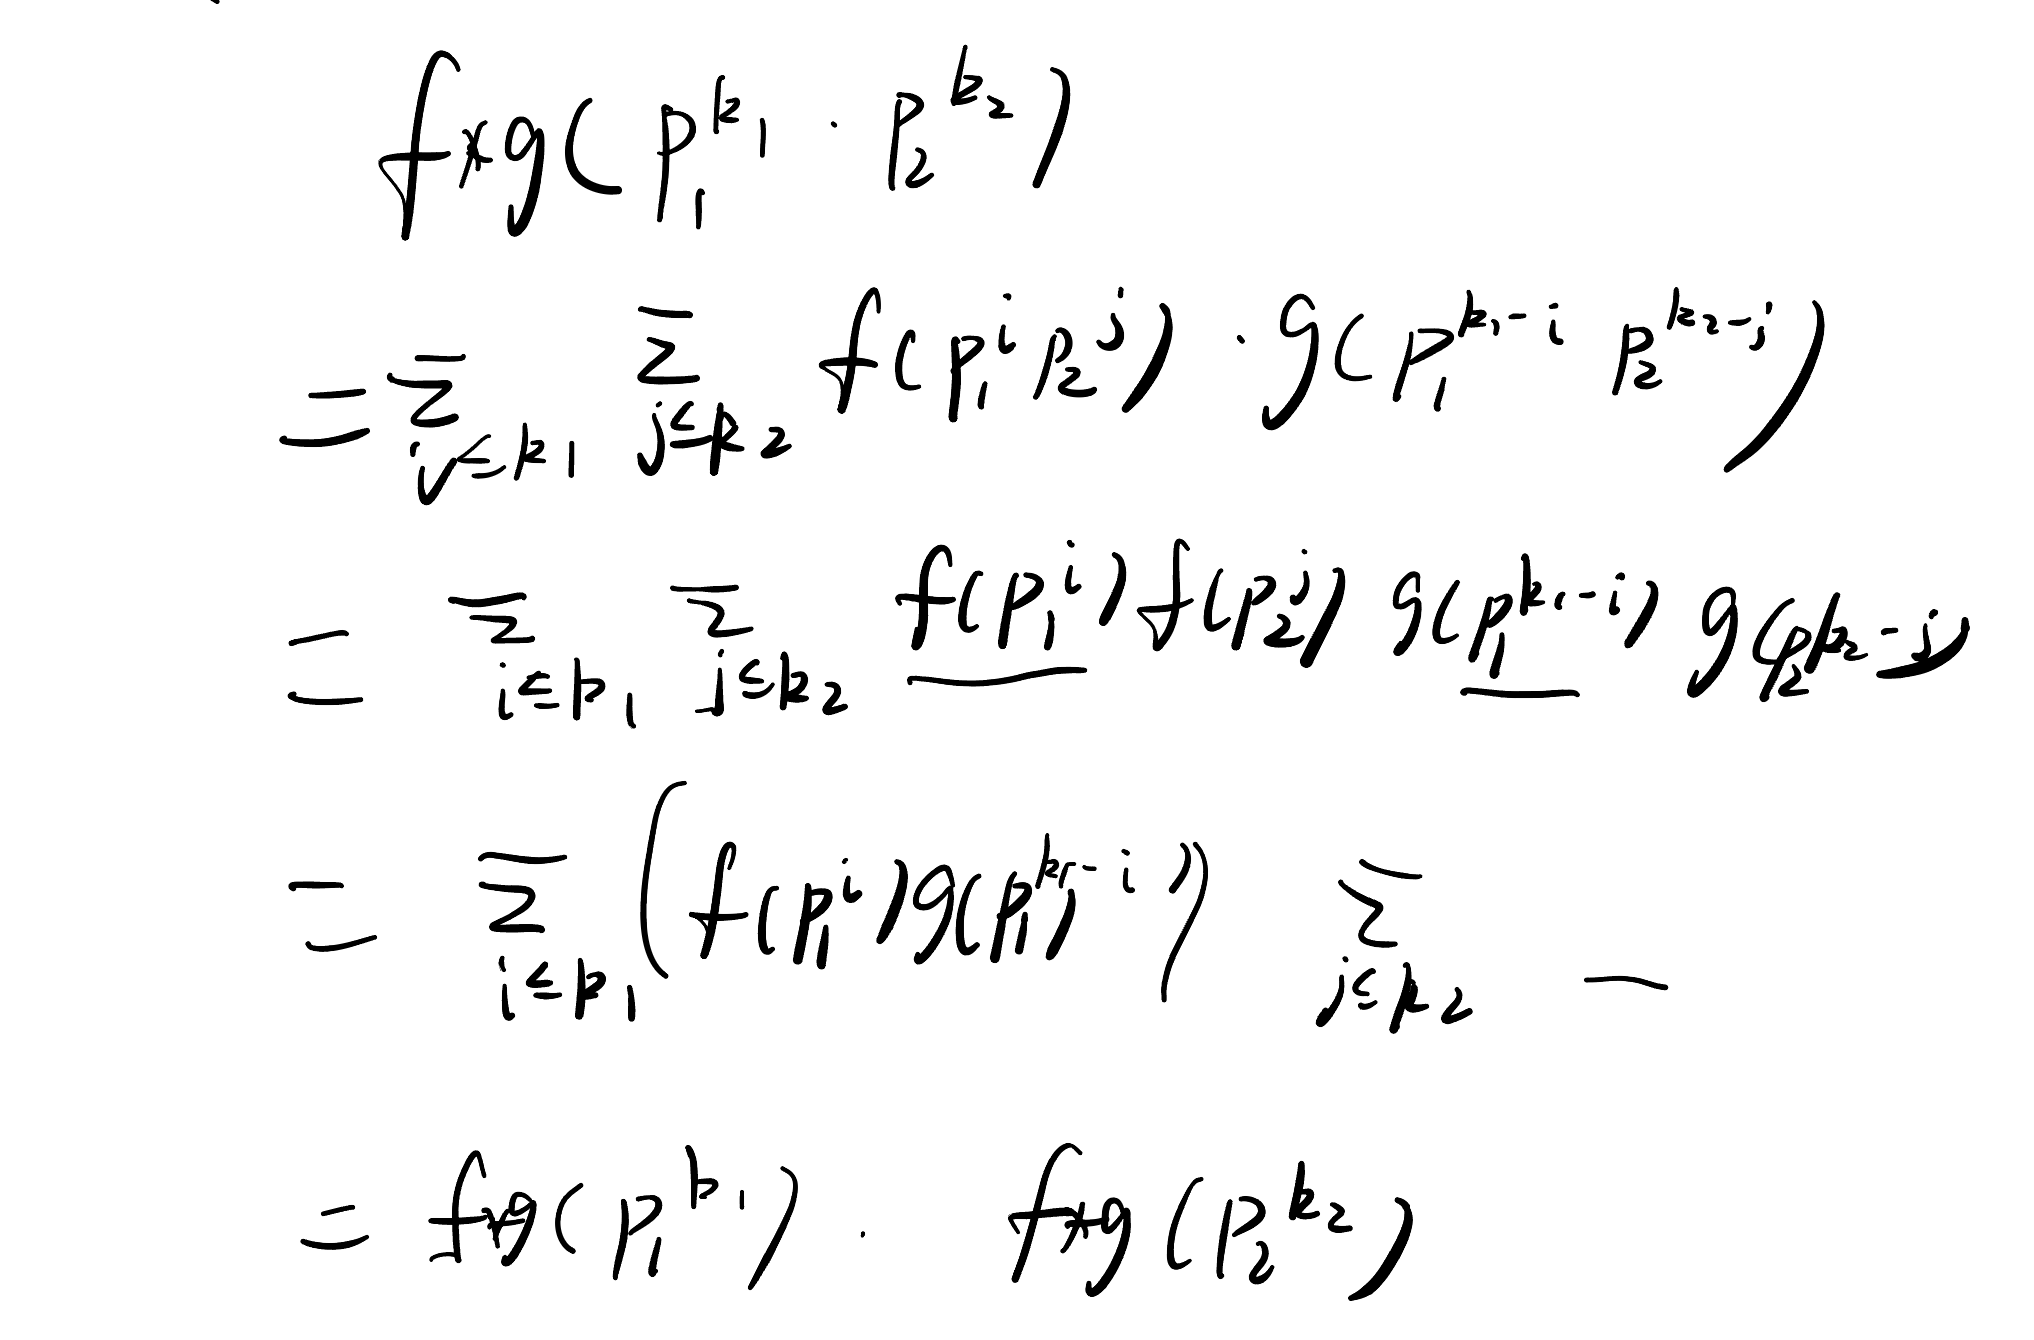 f*g(p₁^{k₁} · p₂^{k₂})
= Σ_{i≤k₁} Σ_{j≤k₂} f(p₁^i p₂^j) · g(p₁^{k₁-i} p₂^{k₂-j})
= Σ_{i≤k₁} Σ_{j≤k₂} f(p₁^i) f(p₂^j) g(p₁^{k₁-i}) g(p₂^{k₂-j})
= Σ_{i≤k₁} (f(p₁^i) g(p₁^{k₁-i})) Σ_{j≤k₂} —
= f*g(p₁^{k₁}) · f*g(p₂^{k₂})